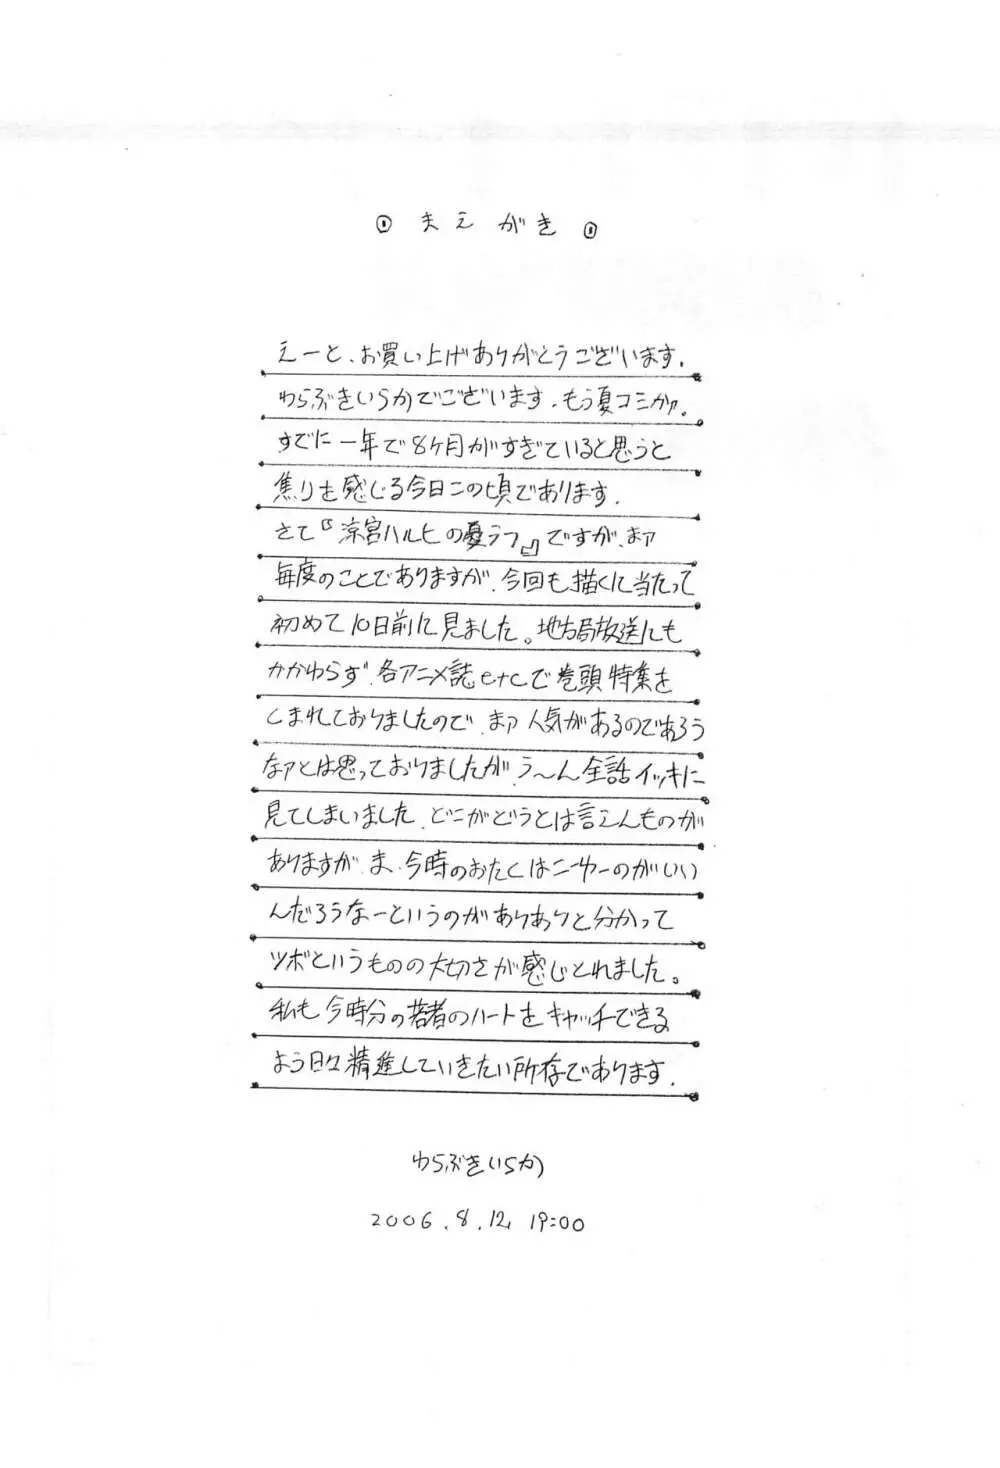 まえがき
えーと、お買い上げありがとうございます.
わらぶきいらかでございます.もう夏コミかァ.
すでに一年で8ヶ月がすぎていると思うと
焦りを感じる今日この頃であります.
さて『涼宮ハルヒの憂ラフ』ですが、まァ
毎度のことでありますが、今回も描くに当たって
初めて10日前に見ました。地方局放送にも
かかわらず、各アニメ誌etcで巻頭特集を
くまれておりましたので、まァ人気があるのであろう
なァとは思っておりましたが、う〜ん全話イッキに
見てしまいました.どこがどうとは言えんものが
ありますが、ま、今時のおたくはこーゆーのがいい
んだろうなーというのがありありと分かって
ツボというものの大切さが感じとれました。
私も今時分の若者のハートをキャッチできる
よう日々精進していきたい所存であります.
わらぶきいらか
2006.8.12, 19:00